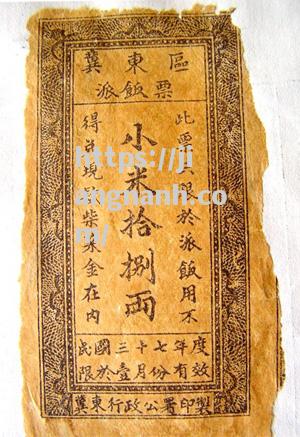 冀東區
派飯票
此票只限於派飯用不
得兑現款柴菜金在内
小米拾捌兩
民國三十七年度
限於壹月份有效
冀東行政公署印製
https://ji
angnanh.co
m/